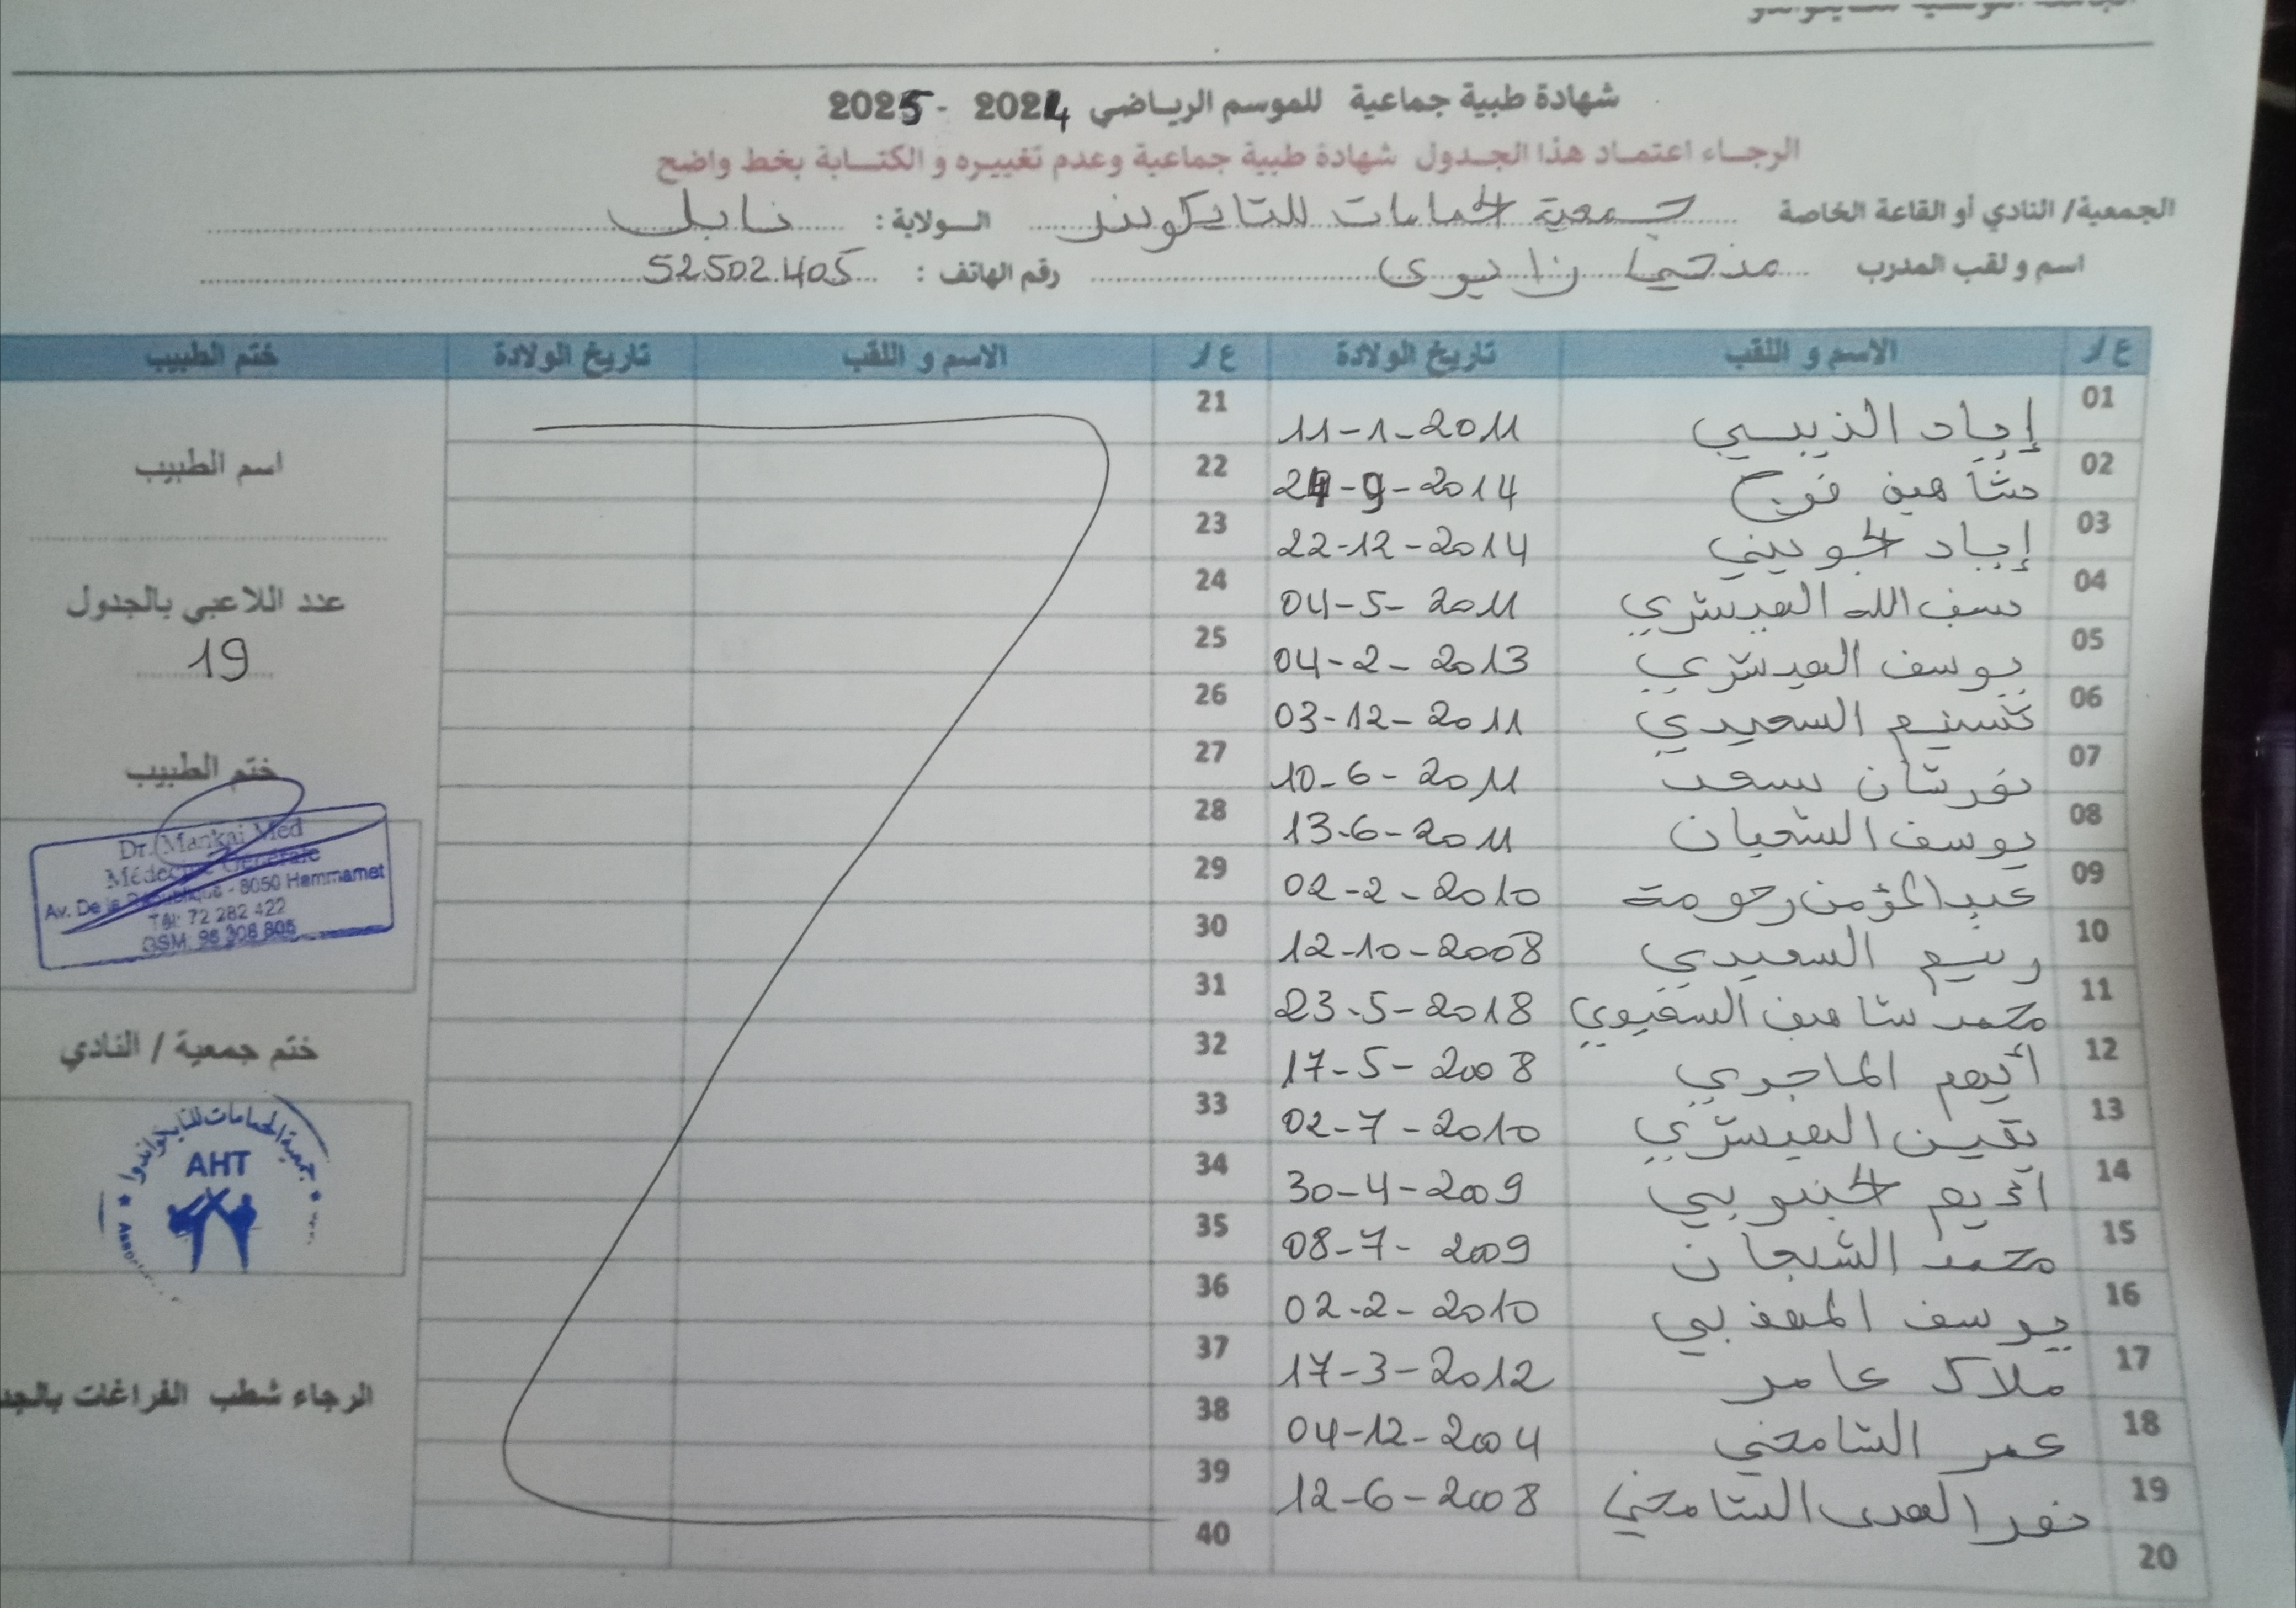 شهادة طبية جماعية للموسم الرياضي 2024 - 2025
الرجاء اعتماد هذا الجدول شهادة طبية جماعية وعدم تغييره و الكتابة بخط واضح
الجمعية/ النادي أو القاعة الخاصة جمعية الحمامات للتايكوندو الولاية: نابل
اسم و لقب المدرب رقم الهاتف : 52502405
ع/ر الاسم و اللقب تاريخ الولادة ع/ر الاسم و اللقب تاريخ الولادة ختم الطبيب
01 إياد الذيبي 11-1-2011 21
02 شاهين فرج 24-9-2014 22
03 إياد الجويني 22-12-2014 23
04 سيف الله العيشري 04-5-2011 24
05 يوسف العيشري 04-2-2013 25
06 تسنيم السعيدي 03-12-2011 26
07 نورشان سعد 10-6-2011 27
08 يوسف الشعبان 13-6-2011 28
09 عبد المؤمن رحومة 02-2-2010 29
10 ريم السعيدي 12-10-2008 30
11 محمد شاهين 23-5-2018 31
12 أيهم الماجري 17-5-2008 32
13 يقين العيشري 02-7-2010 33
14 الجنوبي 30-4-2009 34
15 محمد 08-7-2009 35
16 يوسف 02-2-2010 36
17 ملاك عامر 17-3-2012 37
18 عمر الشامخي 04-12-2004 38
19 نور الهدى الشامخي 12-6-2008 39
20 40
اسم الطبيب
عدد اللاعبي بالجدول
19
ختم الطبيب
Dr. Mankai Med
Médecine Générale
Av. De la République - 8050 Hammamet
Tél: 72 282 422
GSM: 98 308 805
ختم جمعية / النادي
جمعية الحمامات للتايكواندوا
AHT
الرجاء شطب الفراغات